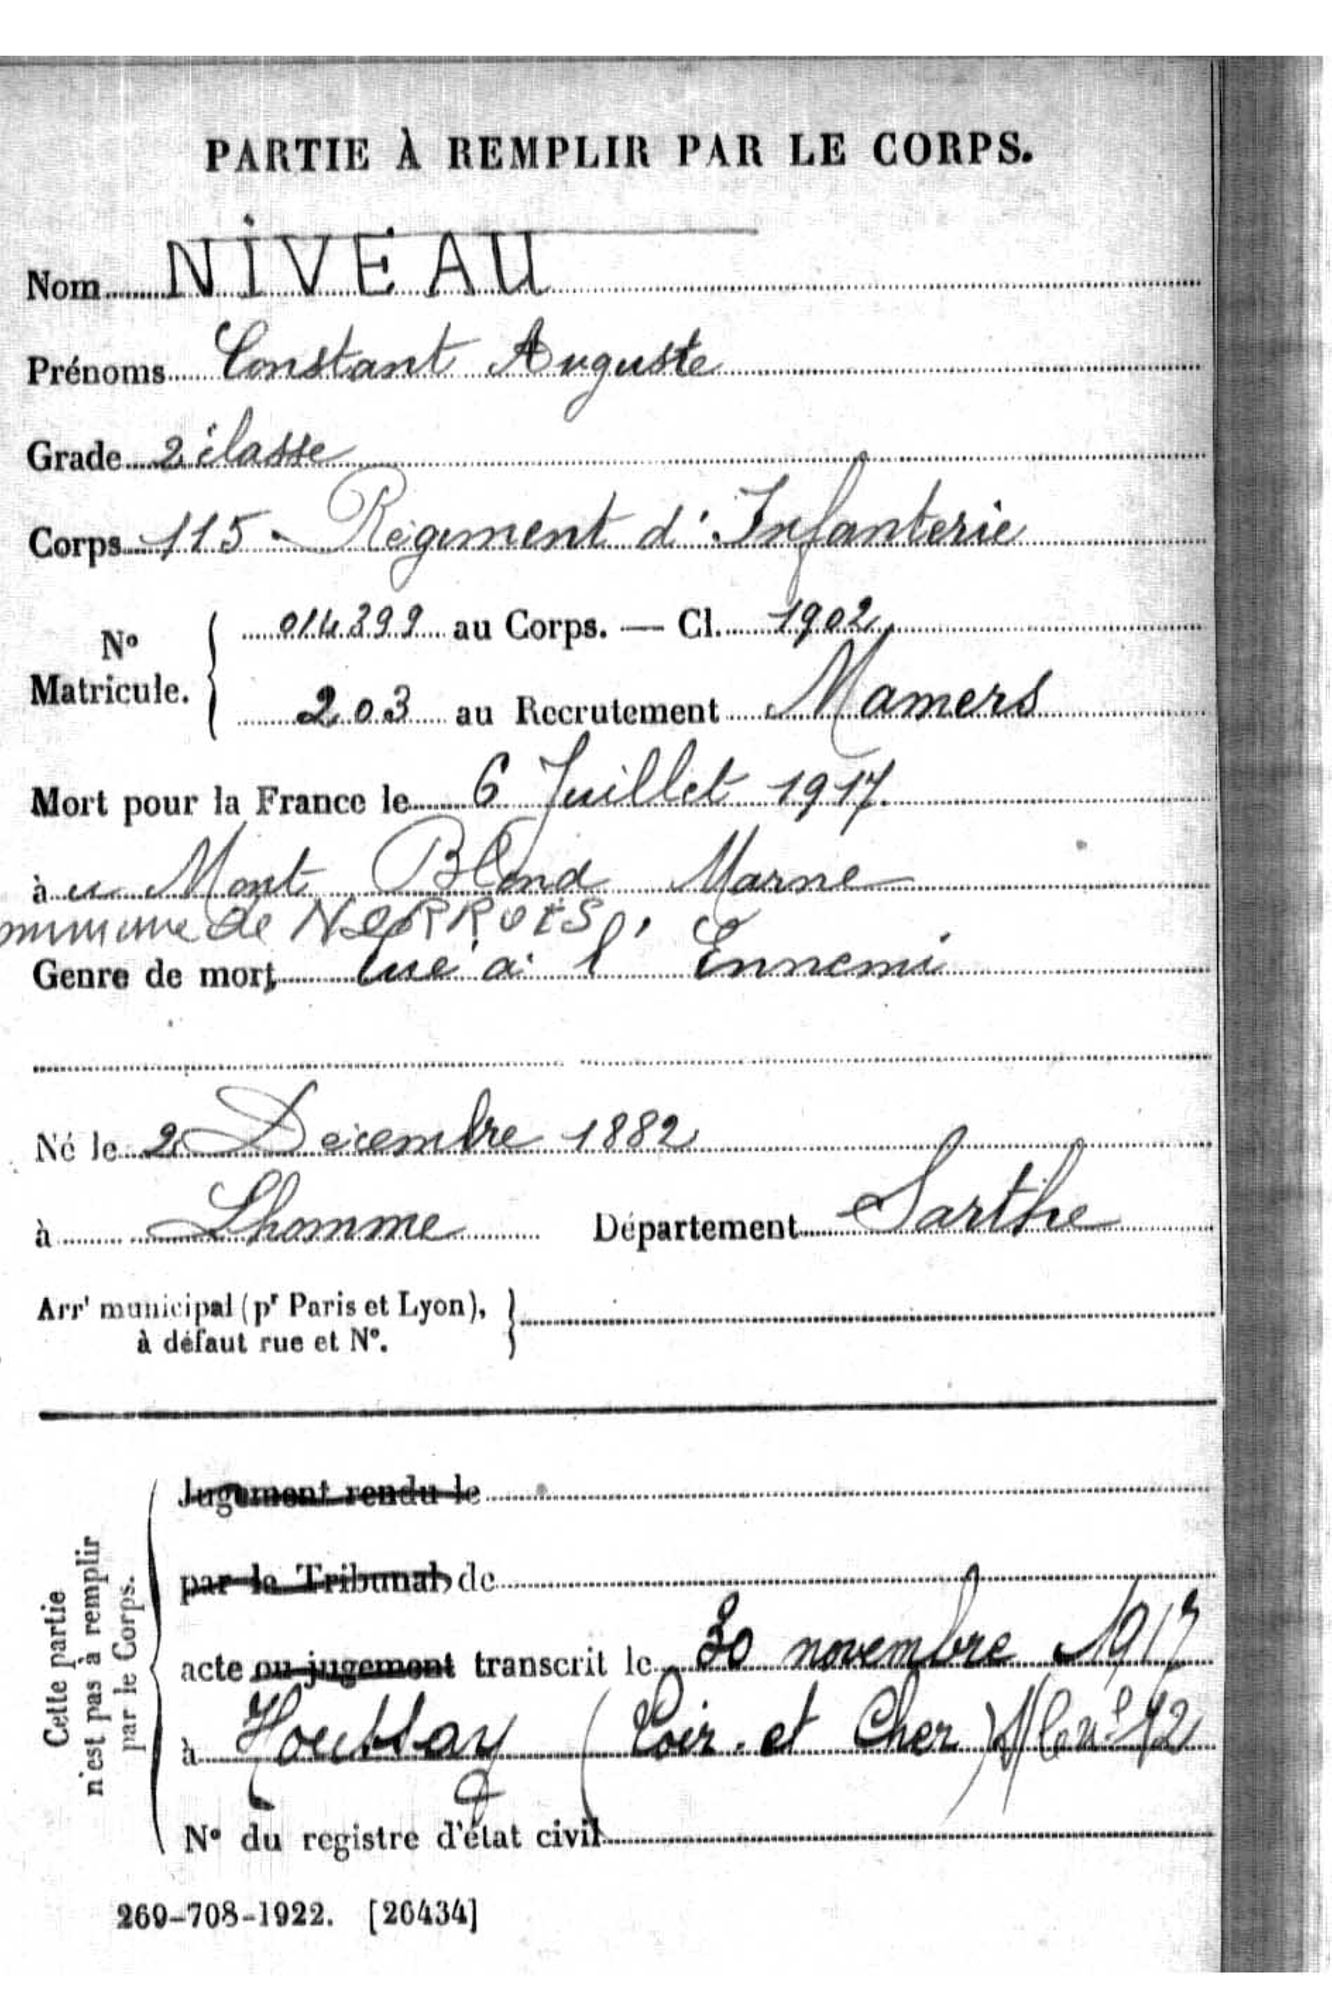 PARTIE À REMPLIR PAR LE CORPS.
Nom NIVEAU
Prénoms Constant Auguste
Grade 2e classe
Corps 115e Régiment d'Infanterie
No Matricule. 014399 au Corps. — Cl. 1902
203 au Recrutement Mamers
Mort pour la France le 6 Juillet 1917
à Mont Blond Marne
de
Genre de mort tué à l'Ennemi
Né le 2 Décembre 1882
à Lhomme Département Sarthe
Arrt municipal (pr Paris et Lyon),
à défaut rue et No.
Jugement rendu le
par le Tribunal de
acte ou jugement transcrit le 30 novembre 1917
à Houssay (Loir-et Cher) 12
No du registre d'état civil
Cette partie
n'est pas à remplir
par le Corps.
269-708-1922. [26434]